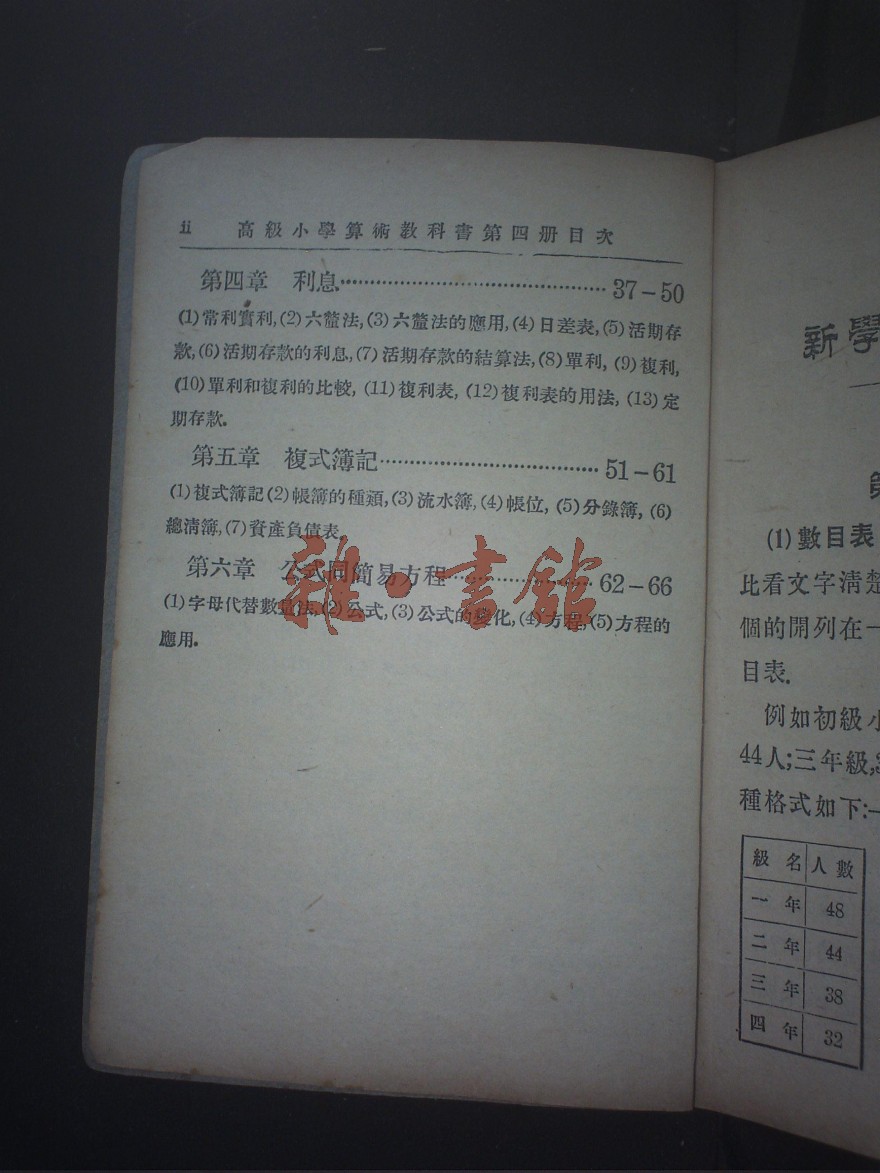 ii 高級小學算術教科書第四册目次
第四章 利息 37－50
(1)常利實利,(2)六釐法,(3)六釐法的應用,(4)日差表,(5)活期存
款,(6)活期存款的利息,(7)活期存款的結算法,(8)單利,(9)複利,
(10)單利和複利的比較,(11)複利表,(12)複利表的用法,(13)定
期存款.
第五章 複式簿記 51－61
(1)複式簿記(2)帳簿的種類,(3)流水簿,(4)帳位,(5)分錄簿,(6)
總淸簿,(7)資產負債表.
第六章 公式同簡易方程 62－66
(1)字母代替數量法,(2)公式,(3)公式的變化,(4)方程,(5)方程的
應用.
雜·書館
新學
第
(1)數目表
比看文字淸楚
個的開列在一
目表.
例如初級小
44人;三年級,3
種格式如下:—
級名 人數
一年 48
二年 44
三年 38
四年 32